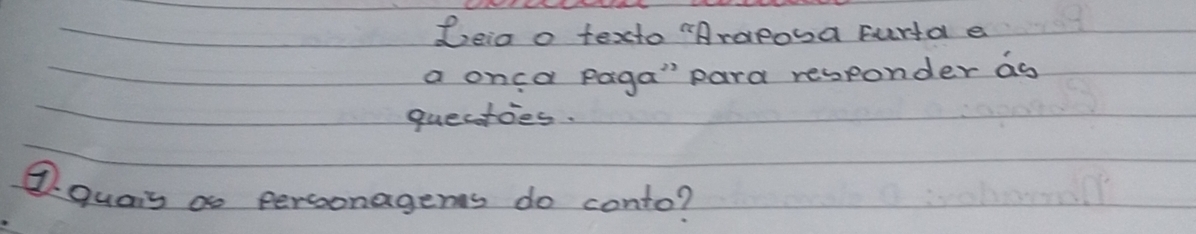 Leia o texto "Araposa furta e
a onça paga" para responder ás
questões.
1. quais as personagens do conto?